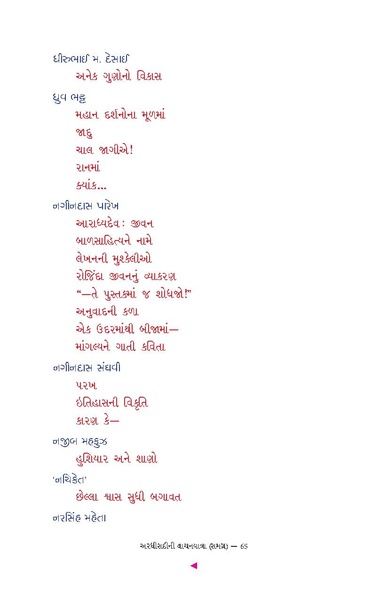 ધીરુભાઈ મ. દેસાઈ
અનેક ગુણોનો વિકાસ
ધ્રુવ ભટ્ટ
મહાન દર્શનોના મૂળમાં
જાદુ
ચાલ જાગીએ!
રાનમાં
ક્યાંક...
નગીનદાસ પારેખ
આરાધ્યદેવ : જીવન
બાળસાહિત્યને નામે
લેખનની મુશ્કેલીઓ
રોજિંદા જીવનનું વ્યાકરણ
“—તે પુસ્તકમાં જ શોધજો!”
અનુવાદની કળા
એક ઉદરમાંથી બીજામાં—
માંગલ્યને ગાતી કવિતા
નગીનદાસ સંઘવી
પરખ
ઇતિહાસની વિકૃતિ
કારણ કે—
નજીબ મહફૂઝ
હુશિયાર અને શાણો
‘નચિકેત’
છેલ્લા શ્વાસ સુધી બગાવત
નરસિંહ મહેતા
અરધીસદીની વાચનયાત્રા (સમગ્ર) — 65